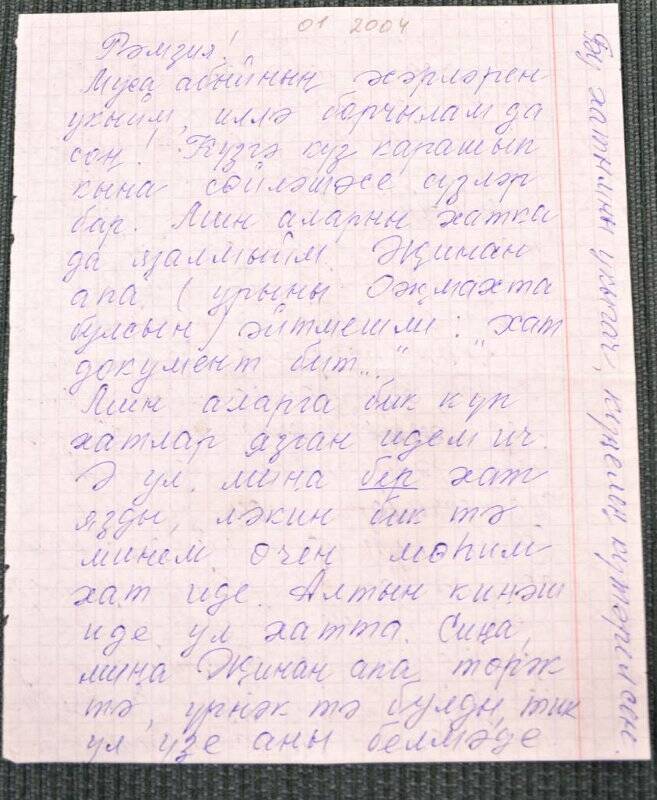 01 2004
Рәмзия!
Муса абыйның әсәрләрен
укыйм, иллә борчылам да
соң! Күзгә күз карашып
кына сөйләшәсе сүзләр
бар. Мин аларны хатка
да язалмыйм. Җинан
апа (урыны Оҗмахта
булсын) әйтмешли: "хат
документ бит..."
Мин аларга бик күп
хатлар язган идем ич.
Ә ул миңа бер хат
язды, ләкин бик тә
минем өчен мөһим
хат иде. Алтын киңәш
иде ул хатта. Сиңа,
миңа Җинан апа тәрҗ
тә, үрнәк тә булды, тик
ул үзе аны белмәде
Бу хатымны укыгач, күңелең күтәрелсен.